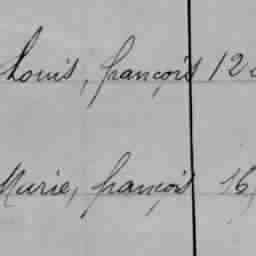 Louis, françois 12
Marie, françois 16